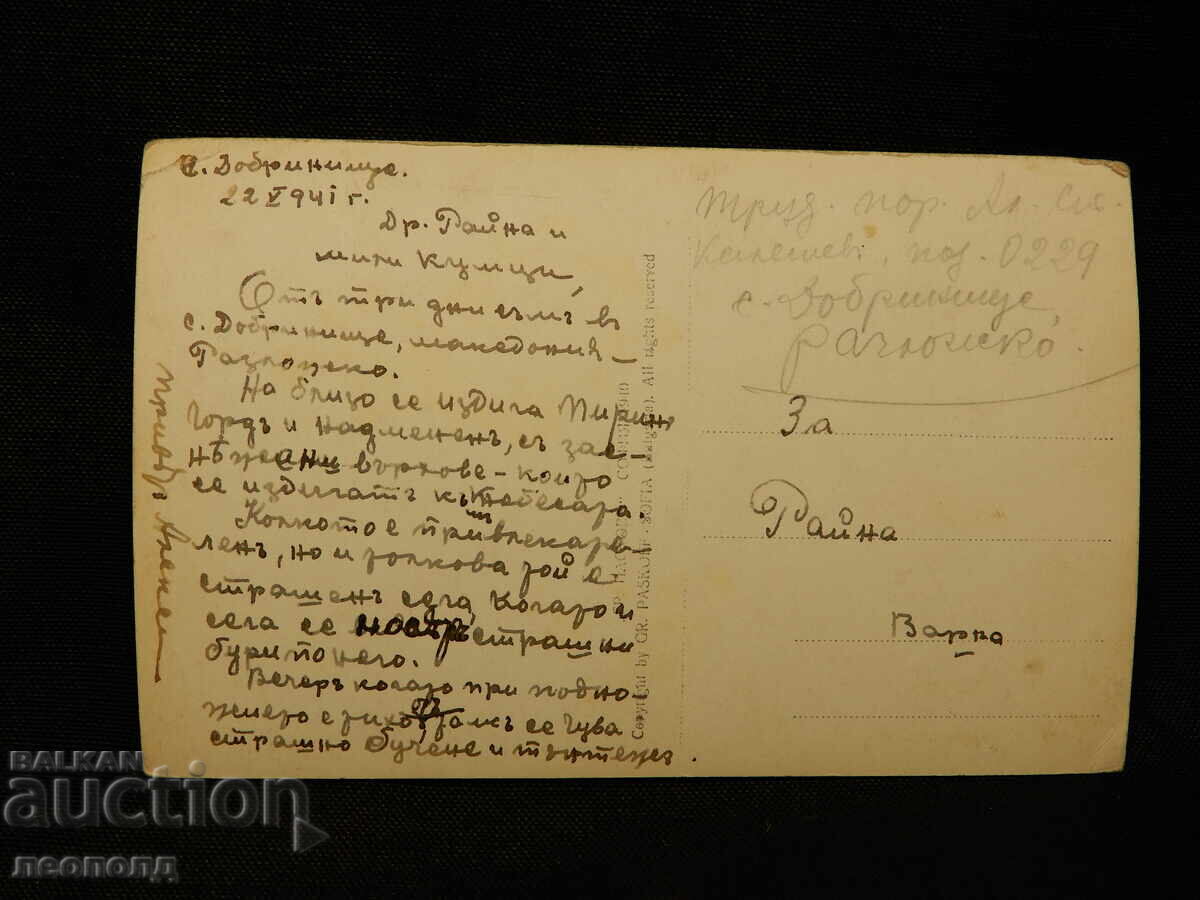 с. Добринище.
22 V 941 г.
Др. Райна и
мили кумци,
Отъ три дни съмъ въ
с. Добринище, македония –
Разложко.
На близо се издига Пиринъ
гордъ и надмененъ, съ зас-
нѣжени върхове – които
се издигатъ къмъ небесата.
Колкото е привлекате-
ленъ, но и толкова той е
страшенъ сега когато и
сега се страшни
бури по него.
Вечеръ когато при подно-
жието е тихо, тамъ се чува
страшно бучене и тътнежъ.
Труд. пор. Ал. Ст.
под. 0229
с. Добринище,
За
Райна
Варна
Copyright by GR. PASKOFF - SOFIA (Bulgaria). All rights reserved
BALKAN
auction
леополд